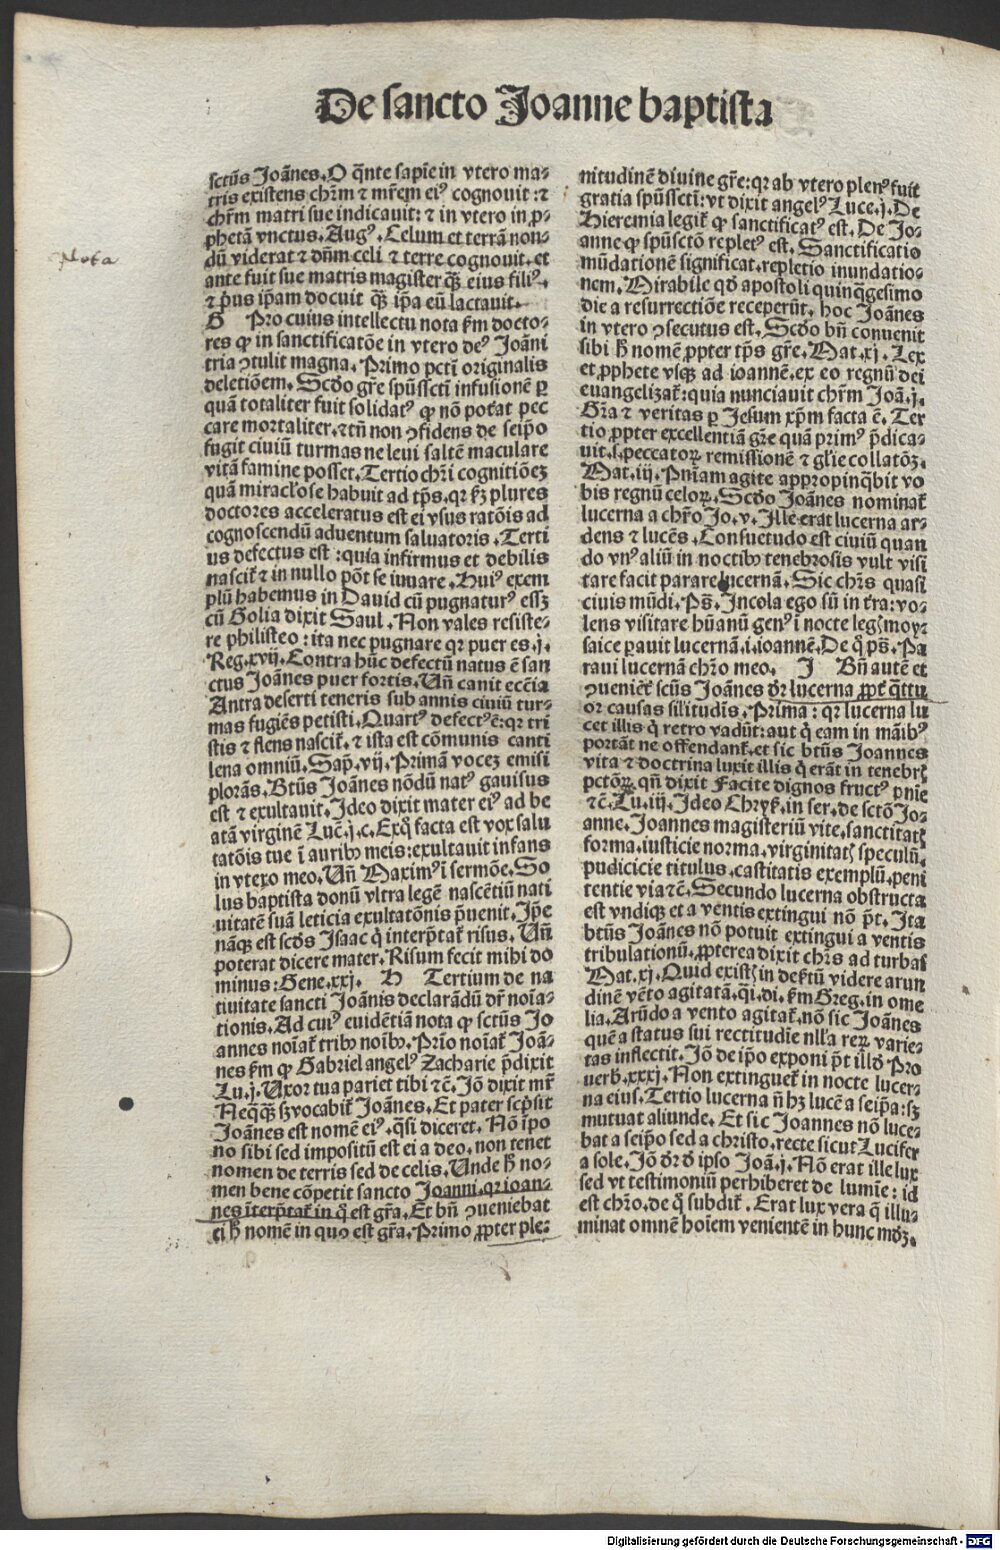 De sancto Joanne baptista
sctũs Joãnes. O q̃nte sapiẽ in vtero ma-
tris existens chr̃m ⁊ mr̃em eiꝰ cognouit : ⁊
chr̃m matri sue indicauit: ⁊ in vtero in ꝓ-
phetã vnctus. Augꝰ. Celum et terrã non-
dũ viderat ⁊ dñm celi ⁊ terre cognouit. et
Nota
ante fuit sue matris magister q̃ꝫ eius filiꝰ.
⁊ p̃us ip̃am docuit q̃ꝫ ip̃a eũ lactauit.
G Pro cuius intellectu nota ẜm docto-
res ꝙ in sanctificatõe in vtero deꝰ Joãni
tria ꝯtulit magna. Primo pcti originalis
deletiõem. Scd̃o gr̃e sp̃ussc̃ti infusionẽ ꝑ
quã totaliter fuit solidatꝰ ꝙ nõ pot̃at pec
care mortaliter. ⁊ tñ non ꝯfidens de seip̃o
fugit ciuiũ turmas ne leui saltẽ maculare
vitã famine posset. Tertio chr̃i cognitiõeꝫ
quã miracl̃ose habuit ad tp̃s. qꝛ ẜꝫ plures
doctores acceleratus est ei vsus ratõis ad
cognoscendũ aduentum saluatoris. Terti
us defectus est : quia infirmus et debilis
nascit̃ ⁊ in nullo põt se iuuare. Huiꝰ exem
plũ habemus in Dauid cũ pugnaturꝰ essꝫ
cũ Golia dixit Saul. Non vales resiste-
re philisteo : ita nec pugnare qꝛ puer es. j.
Reg. xvij. Contra hũc defectũ natus ẽ san
ctus Joãnes puer fortis. Vñ canit ecc̃ia
Antra deserti teneris sub annis ciuiũ tur-
mas fugiẽs petisti. Quartꝰ defectꝰ ẽ: qꝛ tri
stis ⁊ flens nascit̃. ⁊ ista est cõmunis canti
lena omniũ. Sap̃. vij. Primã voceꝫ emisi
plorãs. Bt̃us Joãnes nõdũ natꝰ gauisus
est ⁊ exultauit. Ideo dixit mater eiꝰ ad be
atã virginẽ Luc̃. j. c. Ex q̃ facta est vox salu
tatõis tue ĩ auribꝰ meis: exultauit infans
in vtero meo. Vñ Maximꝰ ĩ sermõe. So
lus baptista donũ vltra legẽ nascẽtiũ nati
uitatẽ suã leticia exultatõnis p̃uenit. Ip̃e
nãqꝫ est scd̃s Isaac q̃ interp̃tat̃ risus. Vñ
poterat dicere mater. Risum fecit mihi do
minus: Gene. xxj. H Tertium de na
tiuitate sancti Joãnis declarãdũ dr̃ noĩa-
tionis. Ad cuiꝰ euidẽtiã nota ꝙ sctũs Jo
annes noĩat̃ tribꝰ noĩbꝰ. Prĩo noĩat̃ Joã-
nes ẜm ꝙ Gabriel angelꝰ Zacharie p̃dixit
Lu. j. Vxor tua pariet tibi ⁊c̃. Jõ dixit mr̃
Neq̃q̃ꝫ sꝫ vocabit̃ Joãnes. Et pater scp̃sit
Joãnes est nomẽ eiꝰ. q̃si diceret. Nõ ip̃o
no sibi sed impositũ est ei a deo. non tenet
nomen de terris sed de celis. Unde ħ no-
men bene cõpetit sancto Joanni. qꝛ ioan-
nes ĩterp̃tat̃ in q̃ est gr̃a. Et bñ ꝯueniebat
ei ħ nomẽ in quo est gr̃a. Primo ꝓpter ple-
nitudinẽ diuine gr̃e: qꝛ ab vtero plenꝰ fuit
gratia sp̃ussc̃ti: vt dixit angelꝰ Luce. j. De
Hieremia legit̃ ꝙ sanctificatꝰ est. De Jo-
anne ꝙ sp̃usctõ repletꝰ est. Sanctificatio
mũdationẽ significat. repletio inundatio-
nem. Mirabile qd̃ apostoli quinq̃gesimo
die a resurrectiõe receperũt. hoc Joãnes
in vtero ꝯsecutus est. Scd̃o bñ conuenit
sibi ħ nomẽ ꝓpter tp̃s gr̃e. Mat. xj. Lex
et ꝓphete vsqꝫ ad ioannẽ. ex eo regnũ dei
euangelizat̃: quia nunciauit chr̃m Joã. j.
Gr̃a ⁊ veritas ꝑ Jesum xp̃m facta ẽ. Ter
tio ꝓpter excellentiã gr̃e quã primꝰ p̃dica-
uit. s. peccatoꝝ remissionẽ ⁊ gl̃ie collatõꝫ.
Mat. iij. Pnĩam agite appropinq̃bit vo
bis regnũ celoꝝ. Scd̃o Joãnes nominat̃
lucerna a chr̃o Jo. v. Ille erat lucerna ar-
dens ⁊ lucẽs. Consuetudo est ciuiũ quan
do vnꝰ aliũ in noctibꝰ tenebrosis vult visi
tare facit parare lucernã. Sic chr̃s quasi
ciuis mũdi. Ps̃. Incola ego sũ in tr̃a: vo-
lens visitare hũanũ genꝰ ĩ nocte legꝭ moy-
saice parauit lucernã. i. ioannẽ. De q̃ ps̃. Pa
raui lucernã chr̃o meo. J Bñ autẽ et
ꝯueniẽt̃ scũs Joãnes dr̃ lucerna ꝓpt̃ q̃ttu
or causas sil̃itudis. Prima : qꝛ lucerna lu
cet illis q̃ retro vadũt: aut q̃ eam in mãibꝰ
portãt ne offendant̃. et sic bt̃us Joannes
vita ⁊ doctrina luxit illis q̃ erãt in tenebrꝭ
pctõꝝ. qñ dixit Facite dignos fructꝰ pnĩe
⁊c̃. Lu. iij. Ideo Chrys̃. in ser. de sctõ Jo-
anne. Joannes magisteriũ vite. sanctitatꝭ
forma. iusticie norma. virginitatꝭ speculũ.
pudicicie titulus. castitatis exemplũ. peni
tentie via ⁊c̃. Secundo lucerna obstructa
est vndiqꝫ et a ventis extingui nõ p̃t. Ita
bt̃us Joãnes nõ potuit extingui a ventis
tribulationũ. ꝓpterea dixit chr̃s ad turbas
Mat. xj. Quid existꝭ in deẜtũ videre arun
dinẽ vẽto agitatã. q̃i. di. ẜm Greg. in ome
lia. Arũdo a vento agitat̃. nõ sic Joãnes
quẽ a status sui rectitudĩe nll̃a reꝝ varie-
tas inflectit. Jõ de ip̃o exponi p̃t illd̃ Pro
uerb̃. xxxj. Non extinguet̃ in nocte lucer-
na eius. Tertio lucerna ñ hꝫ lucẽ a seip̃a: sꝫ
mutuat aliunde. Et sic Joannes nõ luce-
bat a seip̃o sed a christo. recte sicut Lucifer
a sole. Jõ dr̃ d̃ ipso Joã. j. Nõ erat ille lux
sed vt testimoniũ perhiberet de lumĩe : id
est chr̃o. de q̃ subdit̃. Erat lux vera q̃ illu-
minat omnẽ hoĩem venientẽ in hunc mõꝫ.
Digitalisierung gefördert durch die Deutsche Forschungsgemeinschaft - DFG